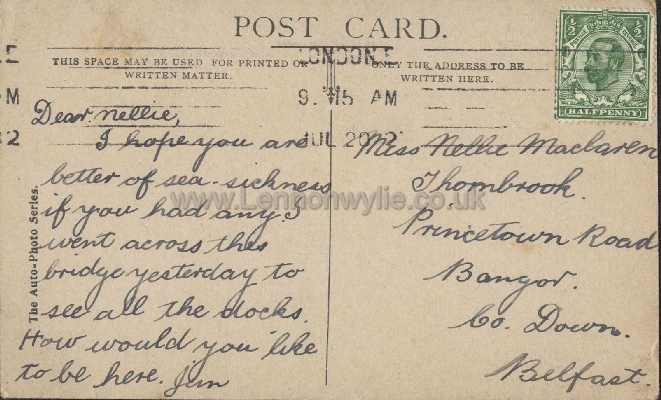 POST CARD.
THIS SPACE MAY BE USED FOR PRINTED OR
WRITTEN MATTER.
ONLY THE ADDRESS TO BE
WRITTEN HERE.
LONDON E
9. 15 AM
JUL 20 12
½ ½
HALFPENNY
E
M
2
Dear Nellie,
I hope you are
better of sea-sickness
if you had any. I
went across this
bridge yesterday to
see all the docks.
How would you like
to be here. Jim
Miss Nellie Maclaren
Thornbrook.
Princetown Road
Bangor.
Co. Down.
Belfast.
The Auto-Photo Series.
www.Lennonwylie.co.uk